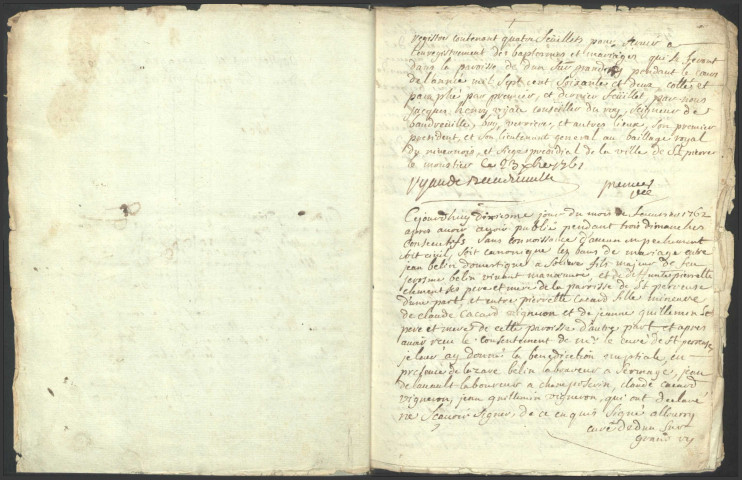 registre contenant quatre feuillets pour servir a
l'enregistrement des baptesmes et mariages qui se feront
dans la paroisse de dun sur grandry pendant le cours
de l'année mil sept cent soixantes et deux, cottés et
paraphé par premier, et dernier feuillet, par nous
jacques henry vyau conseiller du roy, seigneur de
baudreuille, et autres lieux, son premier
president, et son lieutenant general au baillage royal
du nivernois, et siege presidial de la ville de St pierre
le moustier ce 23 xbre 1761
vyau de Baudreuille premier
feuillet
Cejourdhuy dixieme jour du mois de 1762
apres avoir publié pendant trois dimanches
consecutifs sans connoissance d'aucun empechement
soit civil, soit canonique les bans de mariage entre
jean belin domestique a fils majeur de feu
jerosme belin vivant manœuvre, et de deffunte pierrette
clement ses pere et mere de la parroisse de St pereuse
d'une part, et entre pierrette cacard fille mineure
de claude cacard vigneron et de jeanne guillemin ses
pere et mere de cette paroisse d'autre part, et apres
avoir veu le consentement de mr le curé de St pereuse
je leur ay donné la benediction nuptiale en
presence de lazare belin laboureur a jean
laboureur a claude cacard
vigneron, jean guillemin vigneron, qui ont declaré
ne scavoir signer, de ce enquis signé
curé de dun sur
grand ry